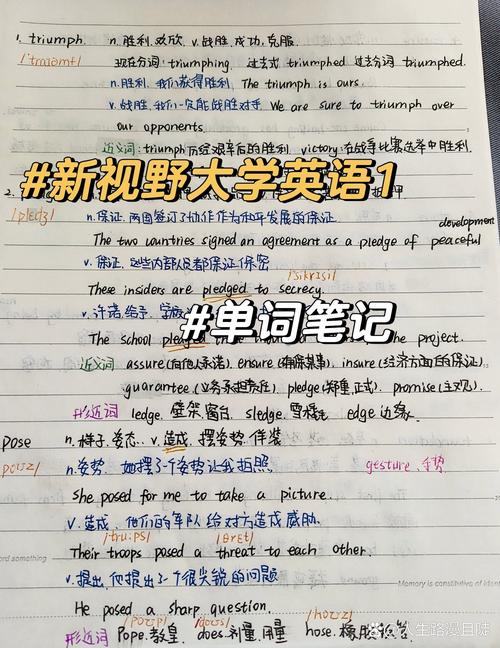 1. triumph n.胜利、欢欣 v.战胜、成功、克服
现在分词: triumphing 过去式 triumphed 过去分词 triumphed.
n.胜利, 我们获得胜利 The triumph is ours.
v.战胜, 我们一定能战胜对手 We are sure to triumph over
our opponents
近义词: triumph 历经艰辛后的胜利 victory: 在战争比赛选举中胜利.
#新视野大学英语1
2.
/pledʒ/ n.保证, 两国签订了协作为和平发展的保证
development
The two countries signed an agreement as a pledge of peaceful
v.保证, 这些内部人员都保证保密
Thee insiders are pledged to secrecy.
v.许诺给予,
#单词笔记
The school pledged the project.
近义词 assure (向他人承诺). ensure (确保某事), insure (经济方面的保证)
guarantee (业务承担责任) pledge (郑重,正式) promise (主观).
形近词 ledge. 壁架,窗台 sledge. 雪橇 edge 边缘
pose n.样子,姿态.. v.造成, 摆姿势,佯装
/poʊz/ n.姿势, 她摆了一个姿势让我拍照 gesture、手势
She posed for me to take a picture.
v.造成, 他们的军队给对方造成威胁
/tru:ps/ /θret/
Their troops posed a threat to each other.
ord something
v.提出, 他提出了一个很尖锐的问题
Memory is constitutive of ident
He posed a sharp question.
形近词 Pope. 教皇 does. 剂量,用量 hose. 橡胶软管
人生路漫且陡